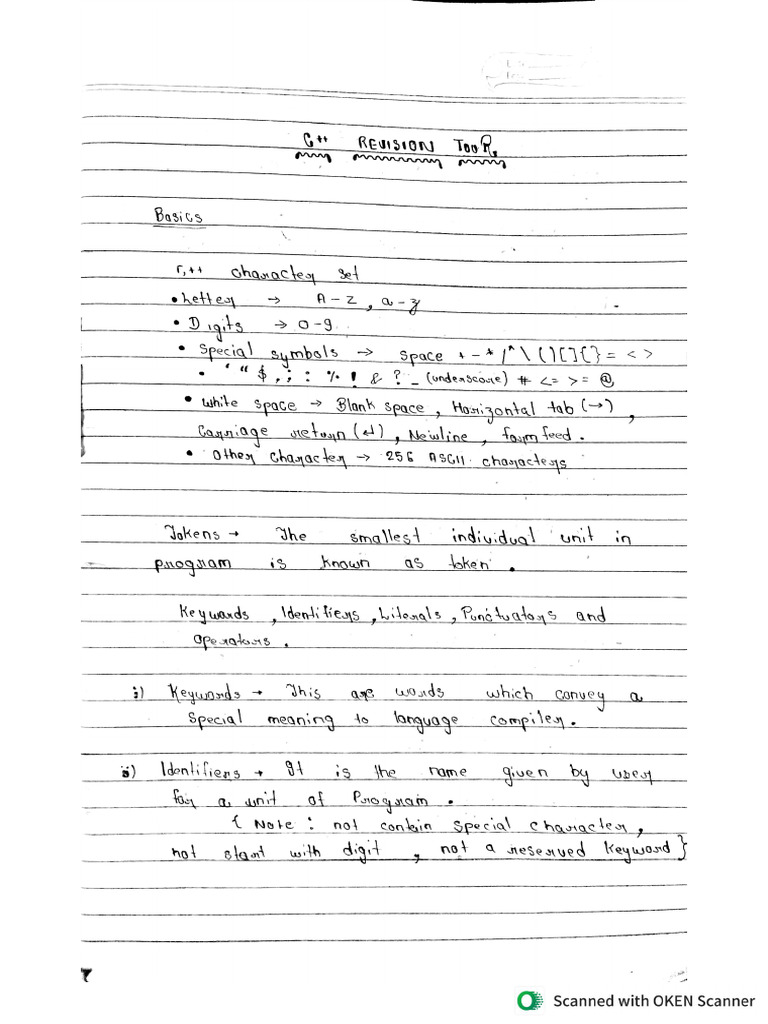 C++ REVISION TOUR
Basics
C++ character set
• Letter → A-Z, a-z
• Digits → 0-9
• Special symbols → Space + - * / ^ \ ( ) [ ] { } = < >
• ' " $ , ; : % ! & ? _ (underscore) # <= >= @
• White space → Blank space, Horizontal tab (→),
Carriage return (↵), Newline, form feed.
• Other character → 256 ASCII characters
Tokens → The smallest individual unit in
program is known as token.
Keywords, Identifiers, Literals, Punctuators and
operators.
i) Keywords → This are words which convey a
special meaning to language compiler.
ii) Identifiers → It is the name given by user
for a unit of Program.
{ Note : not contain special character,
not start with digit, not a reserved Keyword }
Scanned with OKEN Scanner